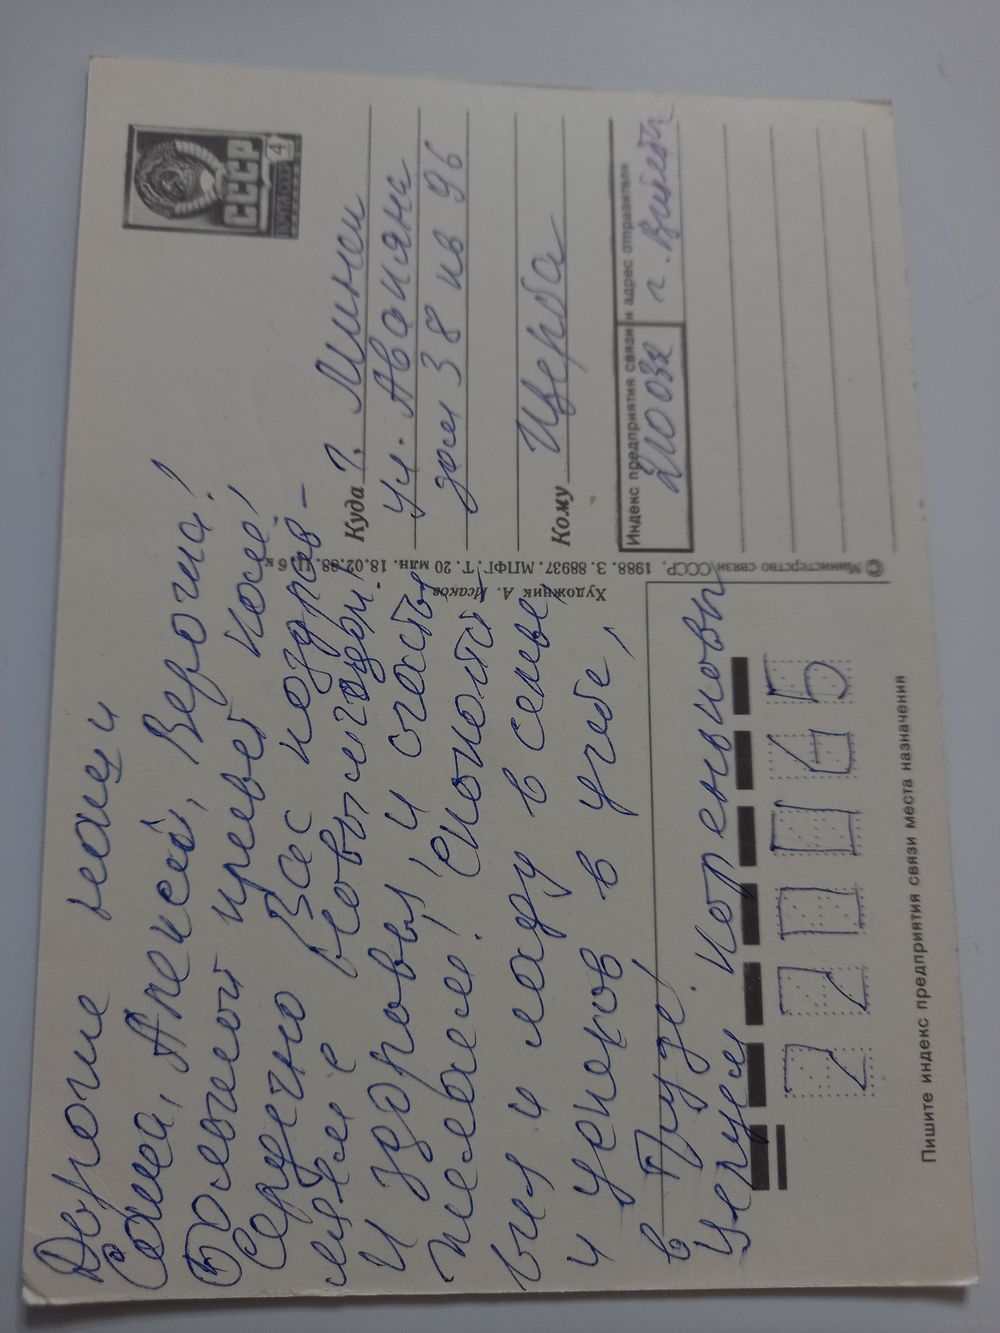 Дорогие наши
Саша, Алексей, Верочка!
Большой привет Вам!
Сердечно Вас поздрав-
ляем с Новым годом!
И здоровья, и счастья
желаем! Спокойст-
вия и ладу в семье
и успехов в учебе,
в труде!
Целуем
СССР
ПОЧТА СССР
4
Куда г. Минск
ул. Авакяна
дом 38 кв 96
Кому Щерба
Индекс предприятия связи и адрес отправителя
210032 г. Витебск
© Министерство связи СССР. 1988. З. 88937. МПФГ. Т. 20 млн. 18.02.88. Ц. 6 к.
Художник А. Исаков
220065
Пишите индекс предприятия связи места назначения